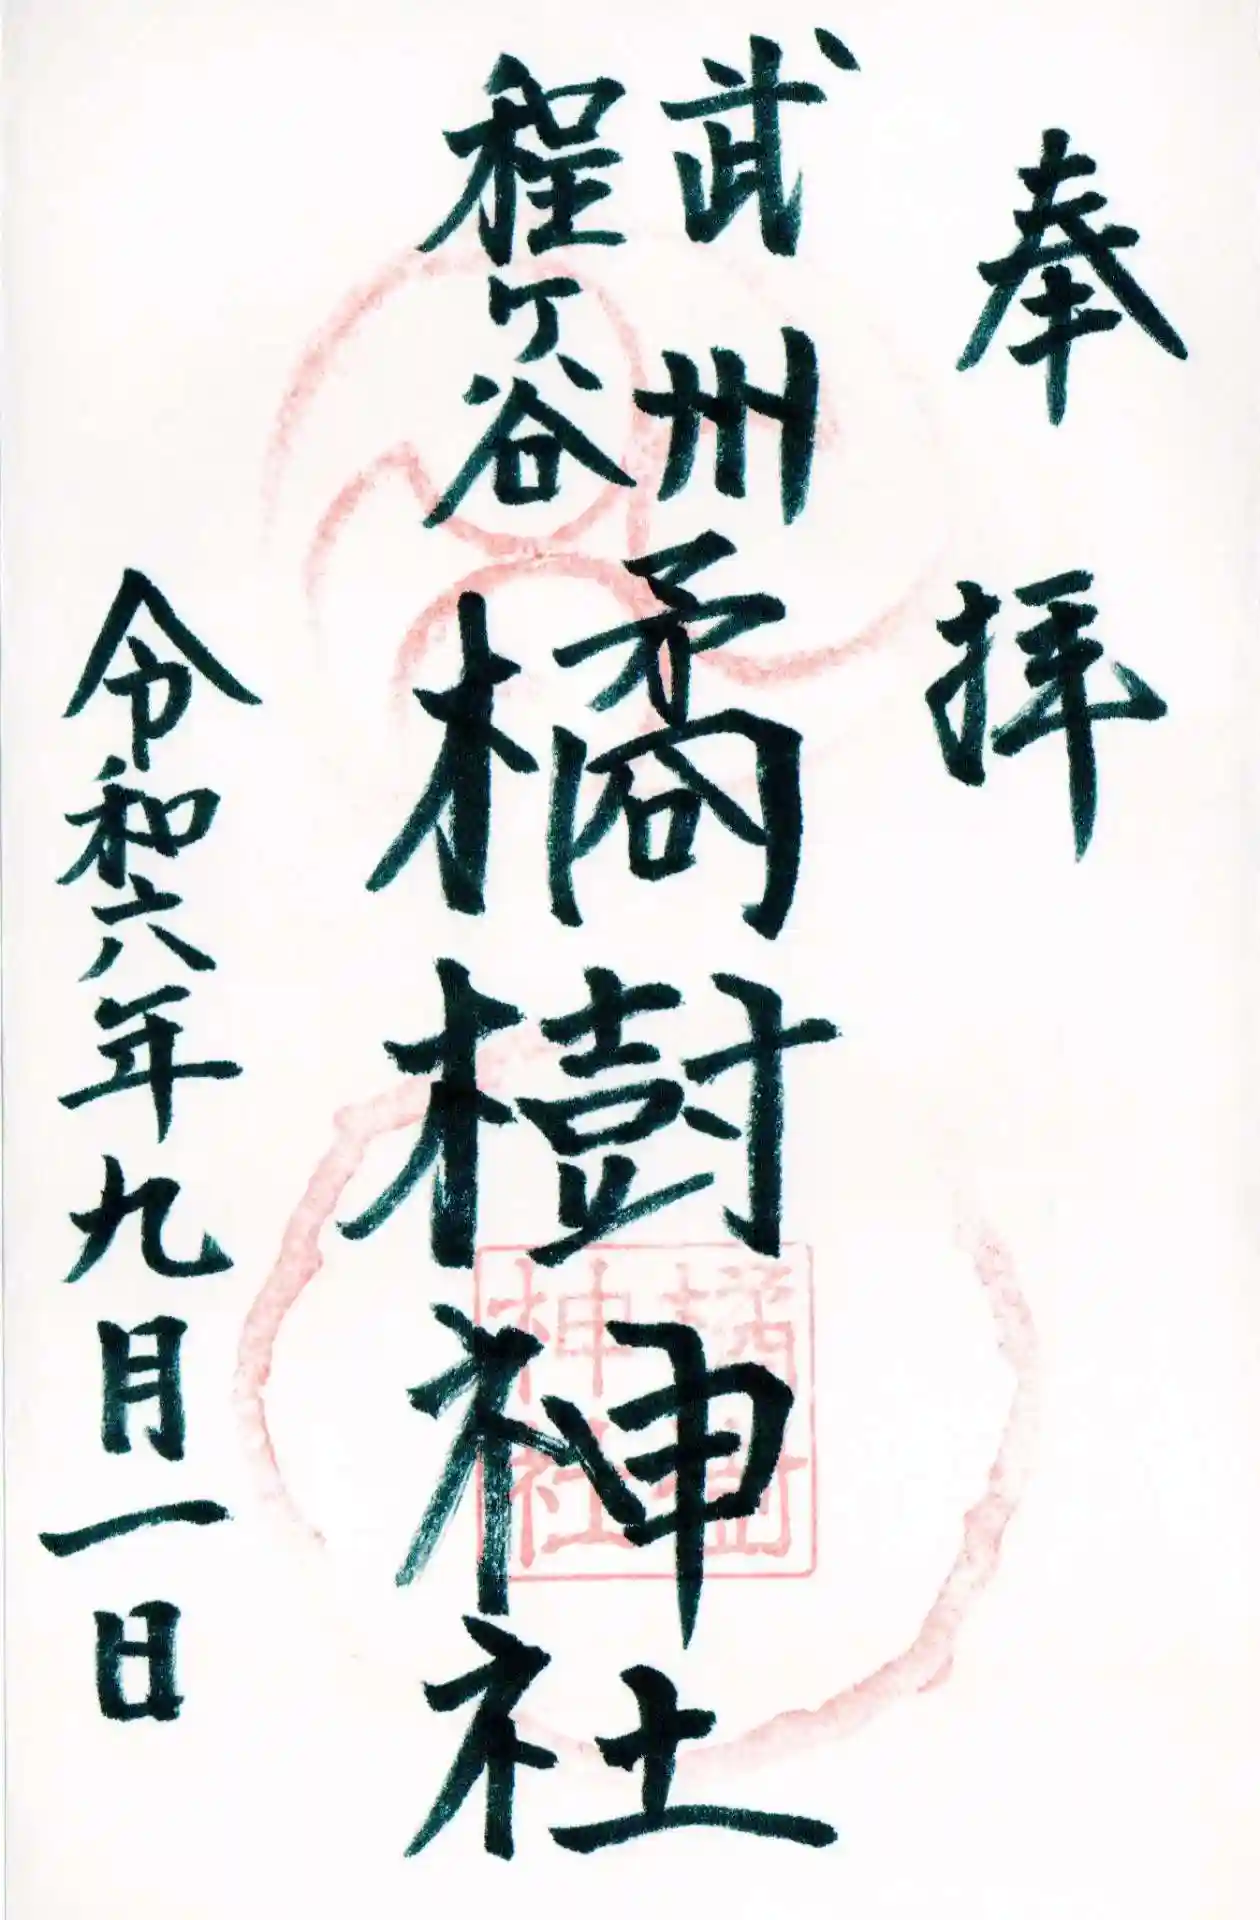 奉拝
武州
程ヶ谷
橘樹神社
橘樹
神社
令和六年九月一日